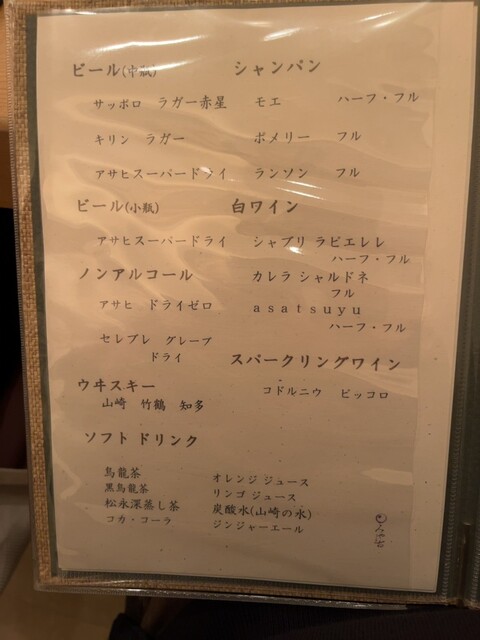 ビール(中瓶)
サッポロ ラガー赤星
キリン ラガー
アサヒスーパードライ
ビール(小瓶)
アサヒスーパードライ
ノンアルコール
アサヒ ドライゼロ
セレブレ グレープ
ドライ
ウヰスキー
山崎 竹鶴 知多
シャンパン
モエ ハーフ・フル
ポメリー フル
ランソン フル
白ワイン
シャブリ ラピエレレ
ハーフ・フル
カレラ シャルドネ
フル
asatsuyu
ハーフ・フル
スパークリングワイン
コドルニウ ピッコロ
ソフト ドリンク
烏龍茶
黒烏龍茶
松永深蒸し茶
コカ・コーラ
オレンジ ジュース
リンゴ ジュース
炭酸水(山崎の水)
ジンジャーエール